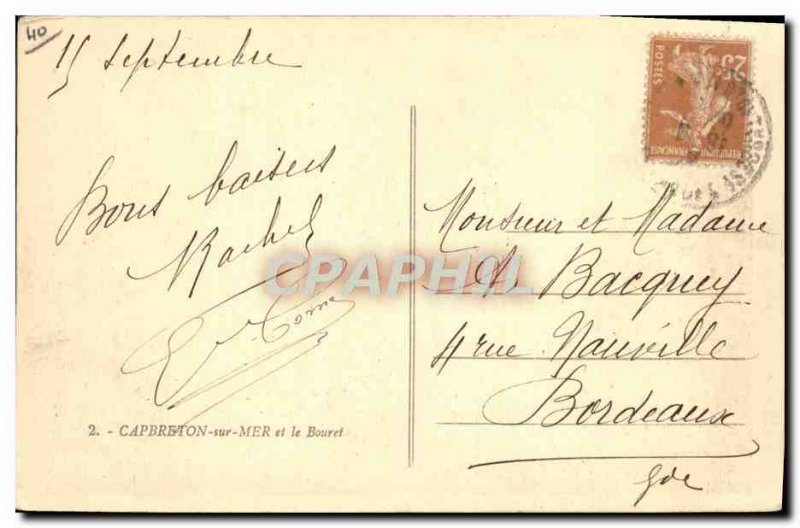 40
15 Septembre
Bons baisers
Rachel
2. - CAPBRETON-sur-MER et le Bouret
25c
POSTES
REPUBLIQUE FRANCAISE
Monsieur et Madame
Bacquey
4 rue Nauville
Bordeaux
Gde
CPAPHIL